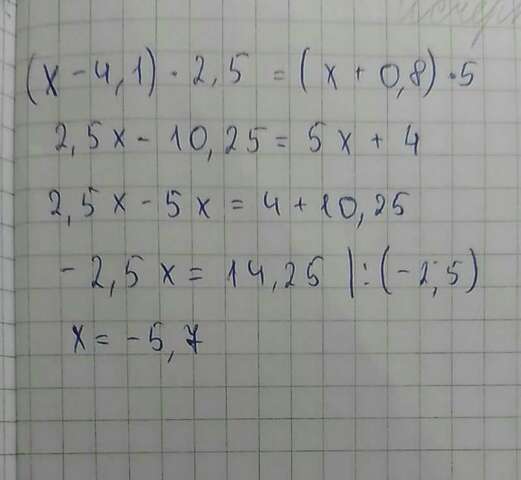 (x - 4,1) · 2,5 = (x + 0,8) · 5
2,5x - 10,25 = 5x + 4
2,5x - 5x = 4 + 10,25
-2,5x = 14,25 |:(-2,5)
x = -5,7